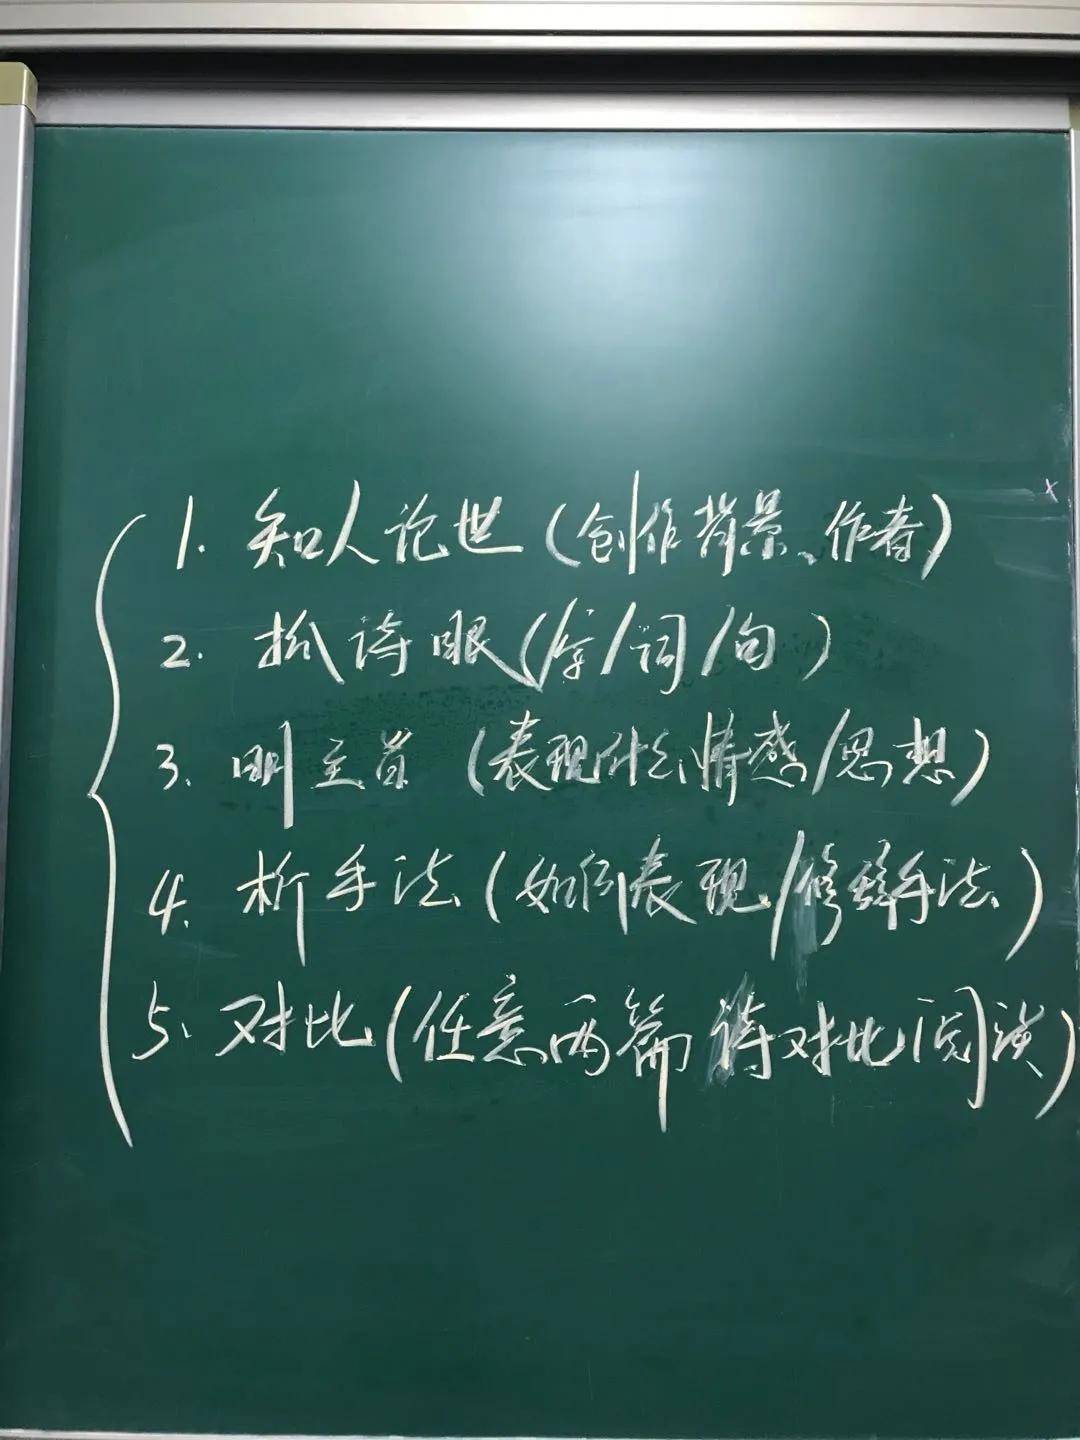 1. 知人论世(创作背景、作者)
2. 抓诗眼(字/词/句)
3. 明主旨(表现什么情感/思想)
4. 析手法(如何表现/修辞手法)
5. 对比(任意两篇诗对比阅读)